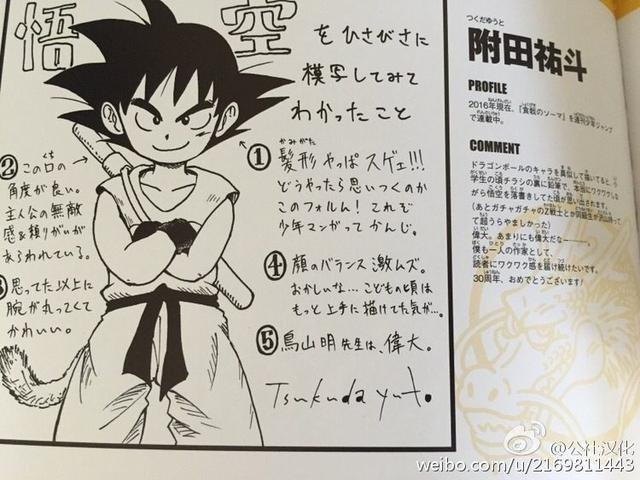 悟空
をひさびさに
模写してみて
わかったこと
①髪形やっぱスゲェ!!!
かみがた
どうやったら思いつくのか
このフォルム!これぞ
少年マンガってかんじ。
②この口の
角度が良い。
主人公の無敵
感&頼りがいが
あらわれている。
③思ってた以上に
腕が丸ってくて
かわいい。
④顔のバランス激ムズ。
おかしいな…こどもの頃は
もっと上手に描けてた気が…。
⑤鳥山明先生は、偉大。
Tsukuda yuto.
つくだゆうと
附田祐斗
PROFILE
2016年現在、『食戟のソーマ』を週刊少年ジャンプ
で連載中。
COMMENT
ドラゴンボールのキャラを真似して描いてると、
学生の頃チラシの裏に鉛筆で、本当にワクワクしな
がら悟空を落書きしてた頃が思い出されます。
(あとガチャガチャのZ戦士とか同級生が
って超うらやましかった)
偉大。あまりにも偉大だなーーー。
僕も一人の作家として、
読者にワクワク感を届け続けたいです。
30周年、おめでとうございます!
@公社汉化
weibo.com/u/2169811443